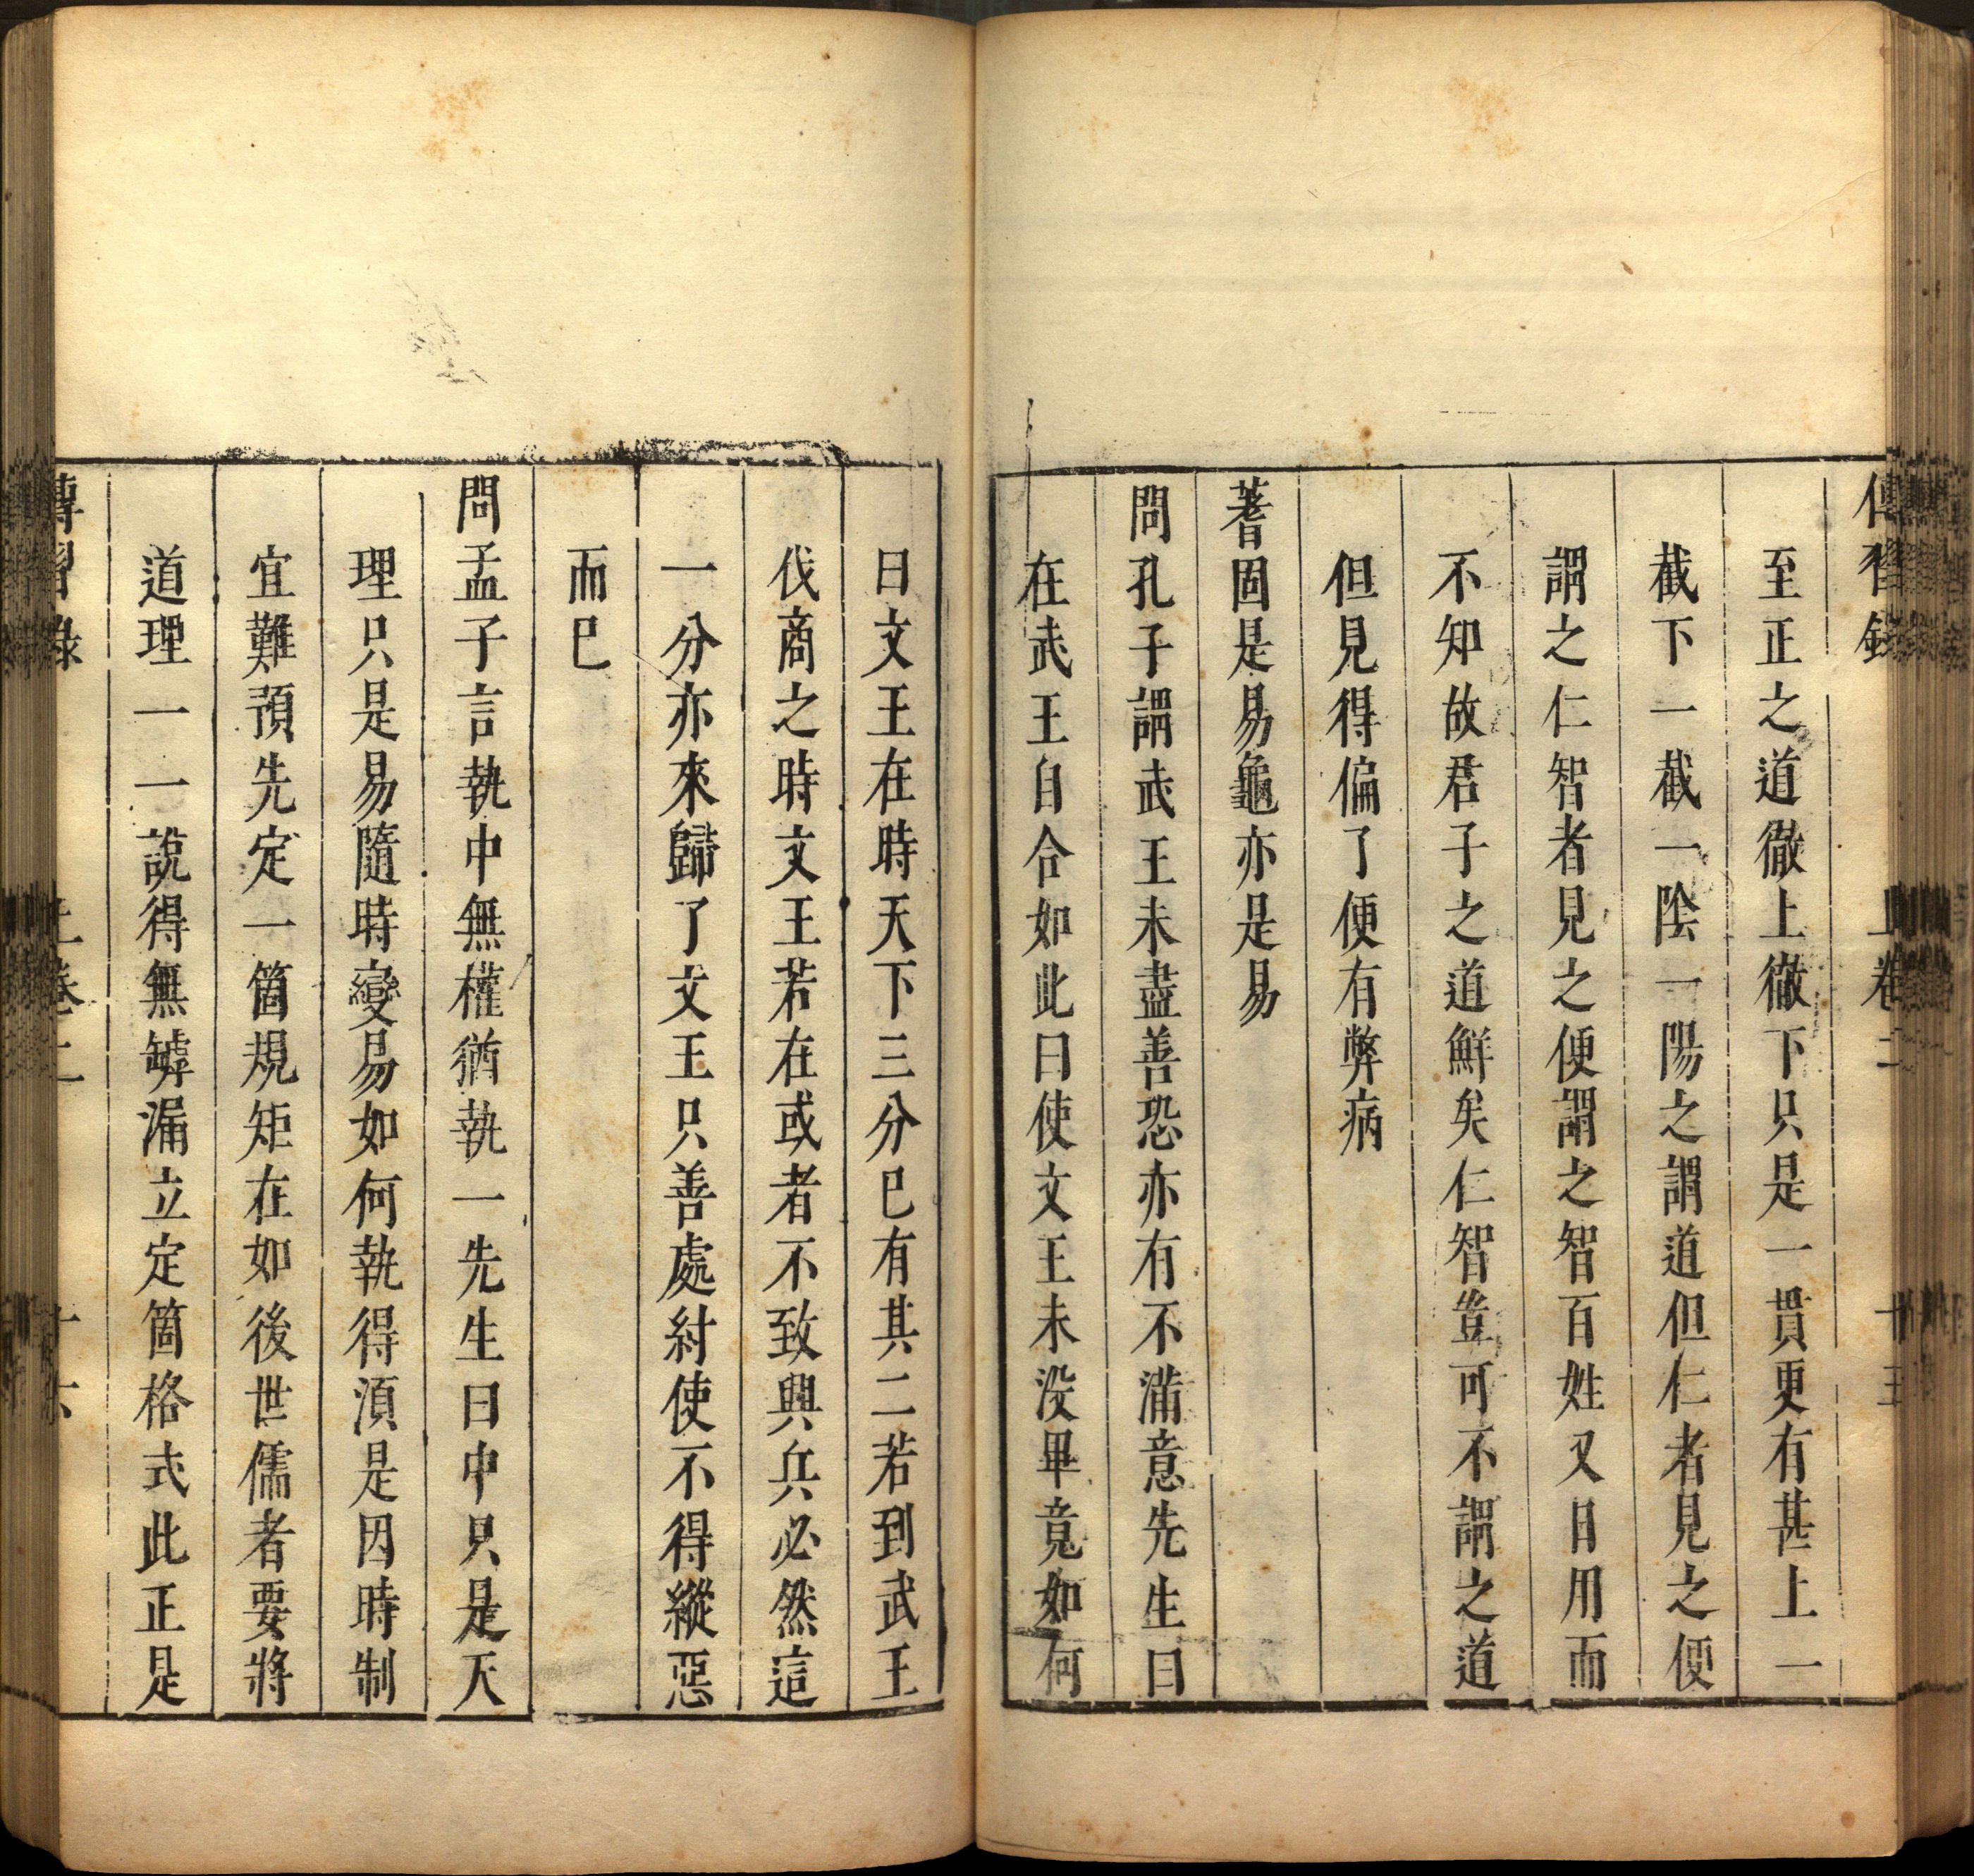 傳習錄 上卷二 十五
至正之道徹上徹下只是一貫更有甚上一
截下一截一陰一陽之謂道但仁者見之便
謂之仁智者見之便謂之智百姓又日用而
不知故君子之道鮮矣仁智豈可不謂之道
但見得偏了便有弊病
蓍固是易龜亦是易
問孔子謂武王未盡善恐亦有不滿意先生曰
在武王自合如此曰使文王未没畢竟如何
曰文王在時天下三分已有其二若到武王
伐商之時文王若在或者不致興兵必然這
一分亦來歸了文王只善處紂使不得縱惡
而已
問孟子言執中無權猶執一先生曰中只是天
理只是易隨時變易如何執得湏是因時制
宜難預先定一箇規矩在如後世儒者要將
道理一一說得無罅漏立定箇格式此正是
傳習錄 上卷二 十六